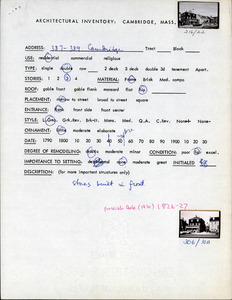 ARCHITECTURAL INVENTORY: CAMBRIDGE, MASS.
216/22
ADDRESS: 387-389 Cambridge Tract Block
USE: residential commercial religious
TYPE: single double row 2 deck 3 deck double 3d tenement Apart.
STORIES: 1 2 3 4 MATERIAL: Frame Brick Med. compo
ROOF: gable front gable flank mansard flat hip
PLACEMENT: narrow to street broad to street square
ENTRANCE: front side front side center
STYLE: L.Geo. Grk.Rev. Brkt. Mans. Med. Q.A. C.Rev. None
ORNAMENT: little moderate elaborate
DATE: 1790 1800 10 20 30 40 50 60 70 80 90 1900 10 20 30
DEGREE OF REMODELING: drastic moderate minor CONDITION: poor fair excel.
IMPORTANCE TO SETTING: detrimental none moderate great INITIALED
DESCRIPTION: (for more important structures only)
stores built in front
possible date (1970) 1826-27
306/10A